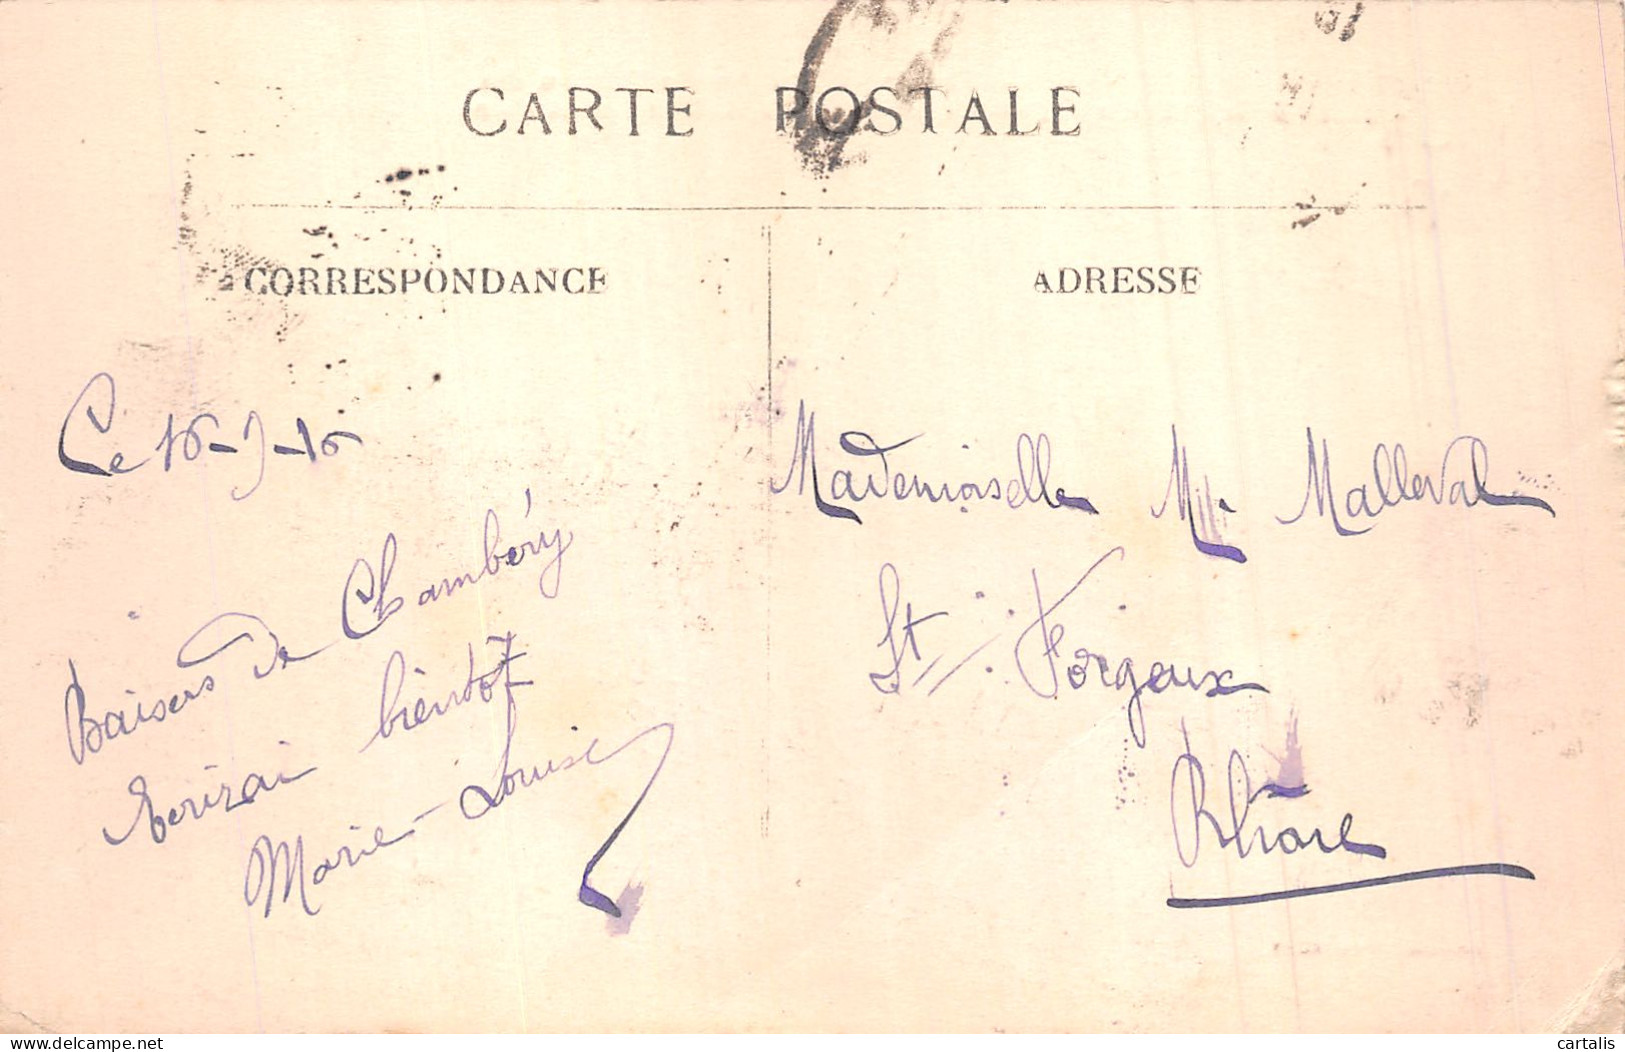 CARTE POSTALE
CORRESPONDANCE
ADRESSE
Le 16-9-16
Baisers de Chambéry
Ecrirai bientôt
Marie-Louise
Mademoiselle M. Malleval
St Forgeux
Rhône
delcampe.net
cartalis